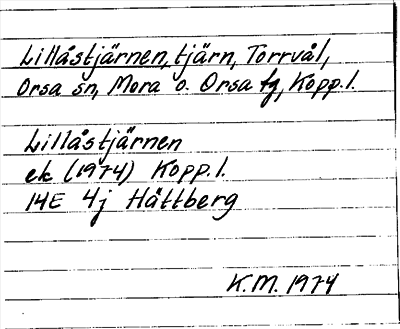 Lillåstjärnen, tjärn, Torrvål,
Orsa sn, Mora o. Orsa tg, Kopp. l.
Lillåstjärnen
ek (1974) Kopp. l.
14E 4j Håttberg
K.M. 1974